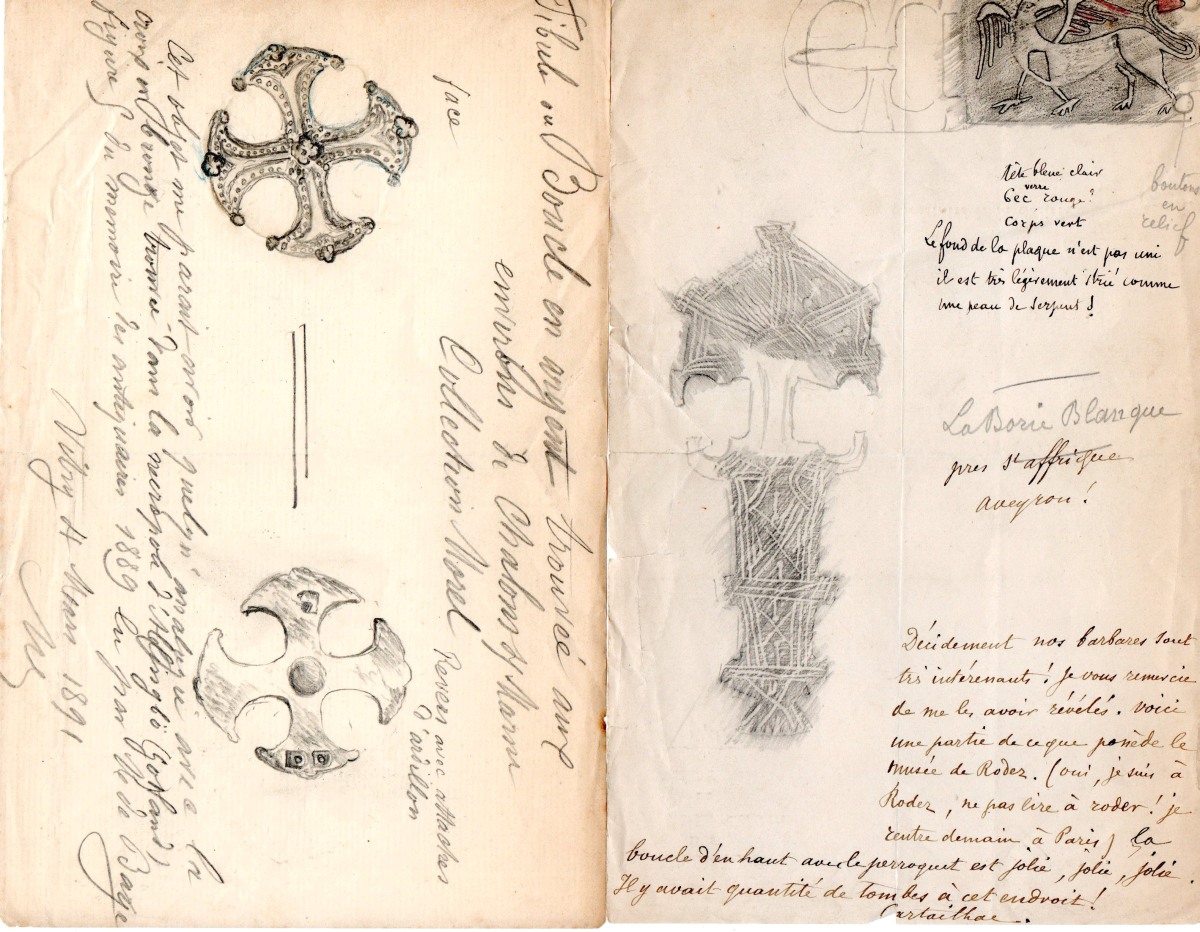 Fibule ou Boucle en argent trouvée aux
environs de Chalons s/ Marne
Collection Morel
face
Revers avec attaches
d'ardillon
Cet objet me parait avoir quelqu' analogie avec la
croix en bronze trouvée dans la nécropole d'
figure 5 du memoire des antiquaires 1889 lu par Mr de Baye
Vitry 4 Mars 1891
tête bleue clair
verre
bec rouge?
corps vert
Le fond de la plaque n'est pas uni
il est très légèrement strié comme
une peau de serpent!
boutons
en
relief
La Borie Blanque
près St affrique
aveyron!
Décidement nos barbares sont
très intéressants! Je vous remercie
de me les avoir révélés. Voici
une partie de ce que possède le
musée de Rodez. (oui, je suis à
Rodez, ne pas lire à roder! je
rentre demain à Paris) la
boucle d'en haut avec le perroquet est jolie, jolie, jolie.
Il y avait quantité de tombes à cet endroit!
Cartailhac.